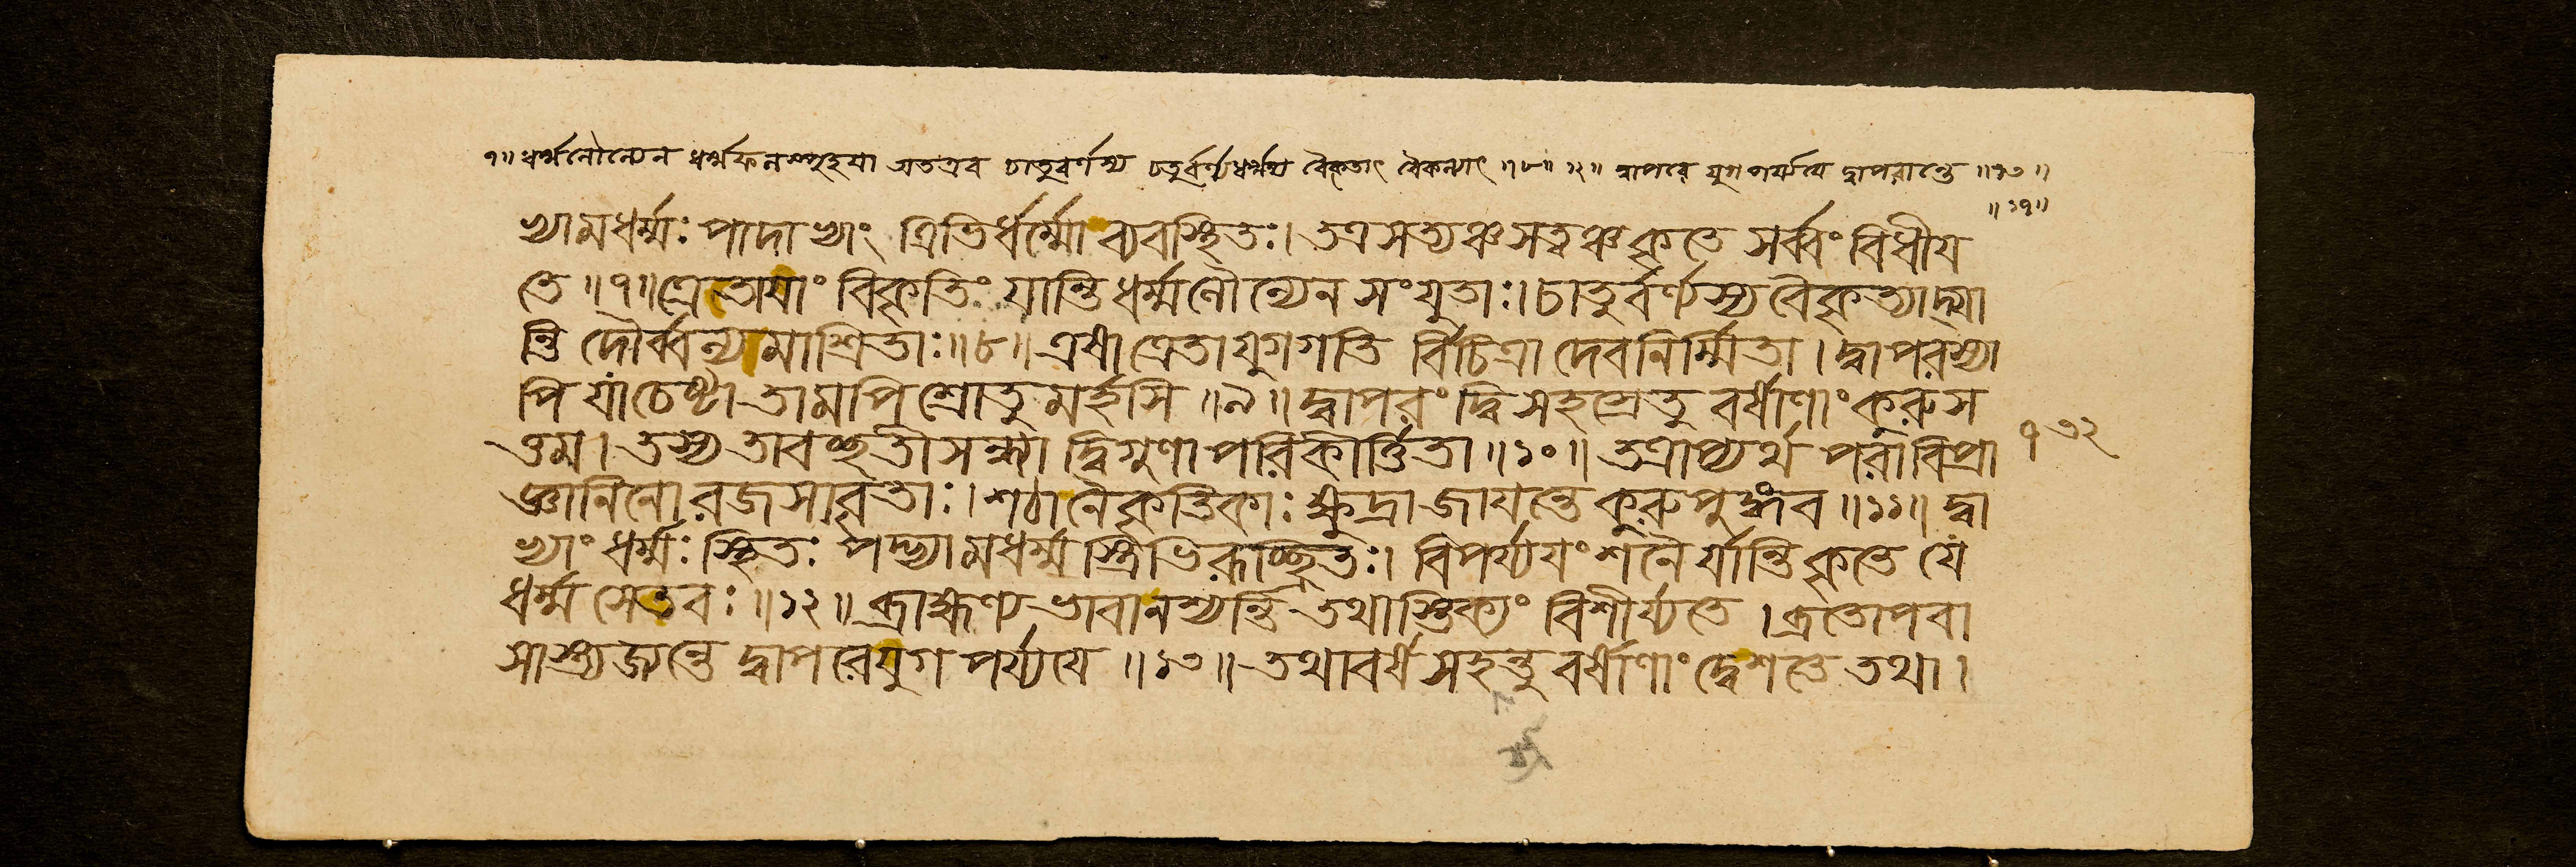 ৭॥ ধর্ম্মলৌল্যেন ধর্ম্মফলস্পৃহয়া অতএব চাতুবর্ণস্য চতুর্বর্ণধর্ম্মস্য বৈকৃত্যাৎ বৈকল্যাৎ ॥৮॥ ১২॥ দ্বাপরে যুগপর্য্যয়ে দ্বাপরান্তে ॥১৩॥
॥১৭॥
ভ্যামধর্ম্মঃ পাদাভ্যাং ত্রিভির্ধর্ম্মো ব্যবস্থিতঃ। তত্র সত্যঞ্চ সত্বঞ্চ কৃতে সর্ব্বং বিধীয়
তে ॥৭॥ ত্রেতায়াং বিকৃতিং যান্তি ধর্ম্মলৌল্যেন সংযুতাঃ। চাতুর্বর্ণ্যস্য বৈকৃত্যাদ্যা
ন্তি দৌর্ব্বল্যমাশ্রিতাঃ॥৮॥ এষা ত্রেতাযুগগতি র্বিচিত্রা দেবনির্ম্মিতা। দ্বাপরস্যা
পি যা চেষ্টা তামপি শ্রোতুমর্হসি ॥৯॥ দ্বাপরং দ্বিসহস্রেতু বর্ষাণাং কুরুস
ত্তম। তস্য তাবচ্ছতী সন্ধ্যা দ্বিগুণা পরিকীর্ত্তিতা ॥১০॥ তত্রাপ্যর্থ পরা বিপ্রা
জ্ঞানিনো রজসাবৃতাঃ। শঠা নৈকৃতিকাঃ ক্ষুদ্রা জায়ন্তে কুরুপুঙ্গব ॥১১॥ দ্বা
ভ্যাং ধর্ম্মঃ স্থিতঃ পদ্ভ্যামধর্ম্ম স্ত্রিভিরুচ্ছ্রিতঃ। বিপর্য্যয়ং শনৈর্যান্তি কৃতে যে
ধর্ম্ম সেতবঃ ॥১২॥ ব্রাহ্মণ্য ভাবা নশ্যন্তি তথাস্তিক্যং বিশীর্য্যতে। ব্রতোপবা
সাস্ত্যজ্যন্তে দ্বাপরে যুগ পর্য্যয়ে ॥১৩॥ তথা বর্ষ সহস্রন্তু বর্ষাণাং দ্বেশতে তথা।
৭৩২